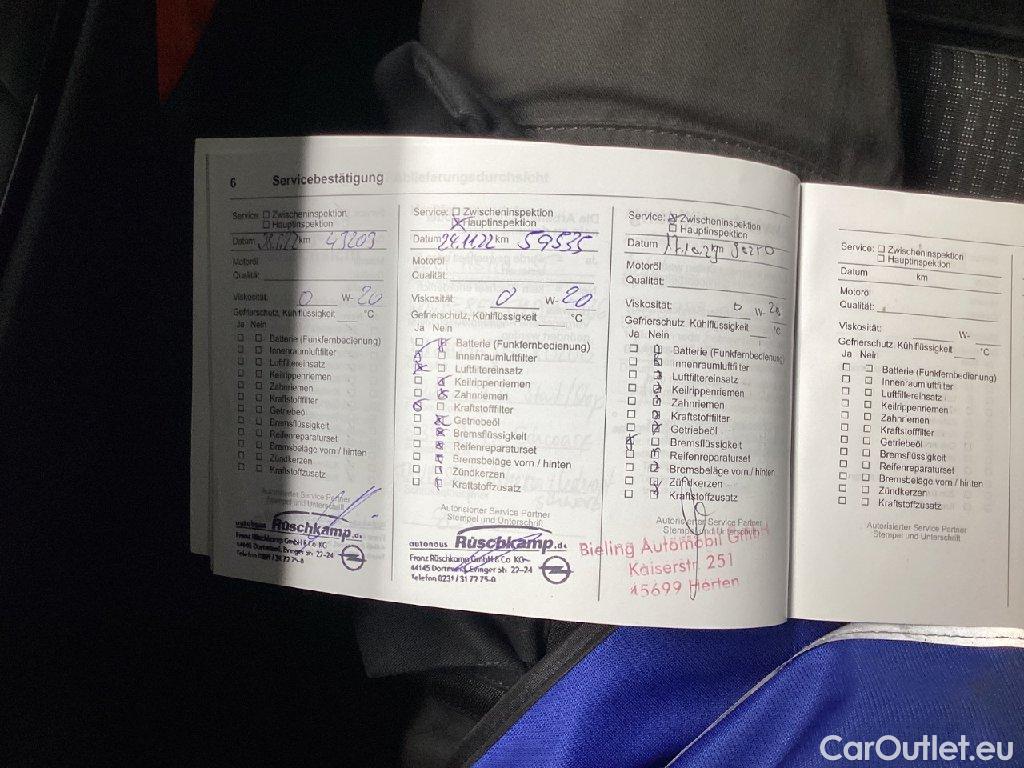 6 Servicebestätigung
Ablieferungsdurchsicht
Service: Zwischeninspektion
Hauptinspektion
Datum km 49209
Motoröl
Qualität:
Viskosität: 0 W- 20
Gefrierschutz, Kühlflüssigkeit °C
Ja Nein
Batterie (Funkfernbedienung)
Innenraumluftfilter
Luftfiltereinsatz
Keilrippenriemen
Zahnriemen
Kraftstofffilter
Getriebeöl
Bremsflüssigkeit
Reifenreparaturset
Bremsbeläge vorn / hinten
Zündkerzen
Kraftstoffzusatz
Autorisierter Service Partner
Stempel und Unterschrift
autohaus Rüschkamp.de
Franz Rüschkamp GmbH & Co KG
44145 Dortmund, Evinger Str. 22-24
Telefon 0231 / 31 72 75-0
Service: Zwischeninspektion
Hauptinspektion
Datum 24.11.22 km 59535
Motoröl
Qualität:
Viskosität: 0 W- 20
Gefrierschutz, Kühlflüssigkeit °C
Ja Nein
Batterie (Funkfernbedienung)
Innenraumluftfilter
Luftfiltereinsatz
Keilrippenriemen
Zahnriemen
Kraftstofffilter
Getriebeöl
Bremsflüssigkeit
Reifenreparaturset
Bremsbeläge vorn / hinten
Zündkerzen
Kraftstoffzusatz
Autorisierter Service Partner
Stempel und Unterschrift
autohaus Rüschkamp.de
Franz Rüschkamp GmbH & Co KG
44145 Dortmund, Evinger Str. 22-24
Telefon 0231 / 31 72 75-0
Service: Zwischeninspektion
Hauptinspektion
Datum km
Motoröl
Qualität:
Viskosität: 0 W- 20
Gefrierschutz, Kühlflüssigkeit °C
Ja Nein
Batterie (Funkfernbedienung)
Innenraumluftfilter
Luftfiltereinsatz
Keilrippenriemen
Zahnriemen
Kraftstofffilter
Getriebeöl
Bremsflüssigkeit
Reifenreparaturset
Bremsbeläge vorn / hinten
Zündkerzen
Kraftstoffzusatz
Autorisierter Service Partner
Stempel und Unterschrift
Bieling Automobil GmbH
Kaiserstr. 251
45699 Herten
Service: Zwischeninspektion
Hauptinspektion
Datum km
Motoröl
Qualität:
Viskosität: W-
Gefrierschutz, Kühlflüssigkeit °C
Ja Nein
Batterie (Funkfernbedienung)
Innenraumluftfilter
Luftfiltereinsatz
Keilrippenriemen
Zahnriemen
Kraftstofffilter
Getriebeöl
Bremsflüssigkeit
Reifenreparaturset
Bremsbeläge vorn / hinten
Zündkerzen
Kraftstoffzusatz
Autorisierter Service Partner
Stempel und Unterschrift
CarOutlet.eu